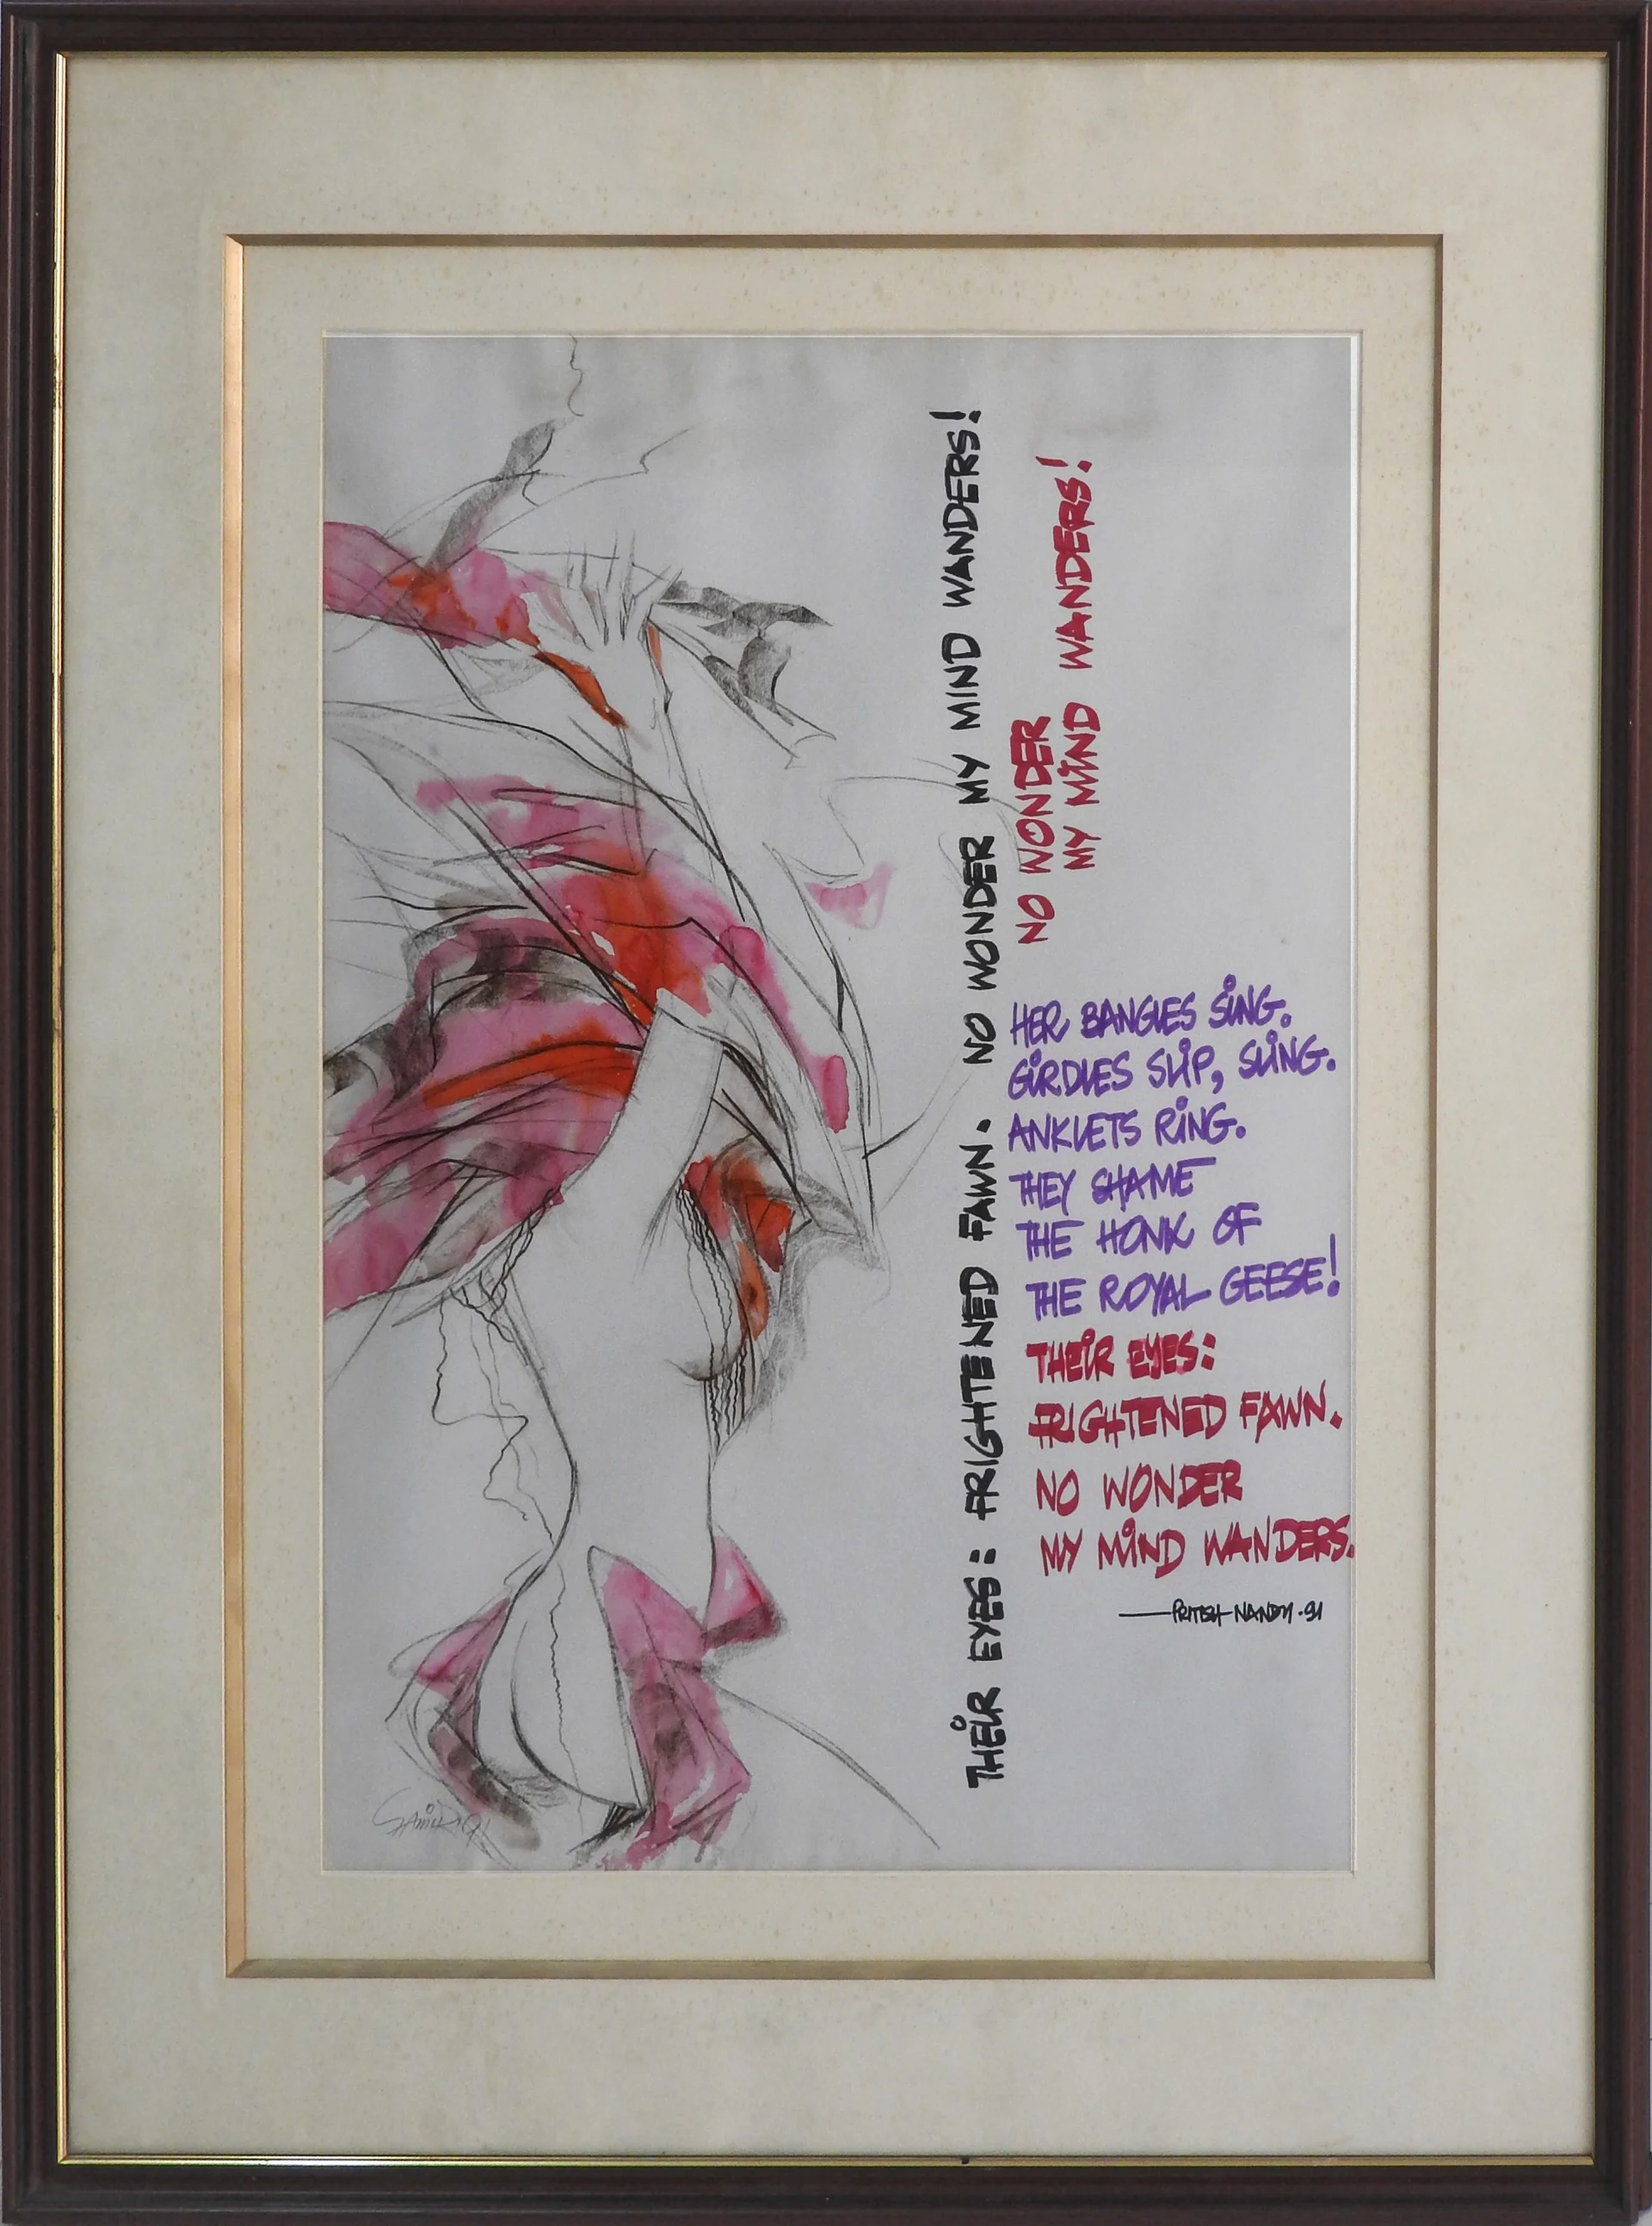 THEIR EYES: FRIGHTENED FAWN. NO WONDER MY MIND WANDERS!
NO WONDER
MY MIND WANDERS!
HER BANGLES SING.
GIRDLES SLIP, SLING.
ANKLETS RING.
THEY SHAME
THE HONK OF
THE ROYAL GEESE!
THEIR EYES:
FRIGHTENED FAWN.
NO WONDER
MY MIND WANDERS.
—PRITISH NANDY·91
SAMIR'91